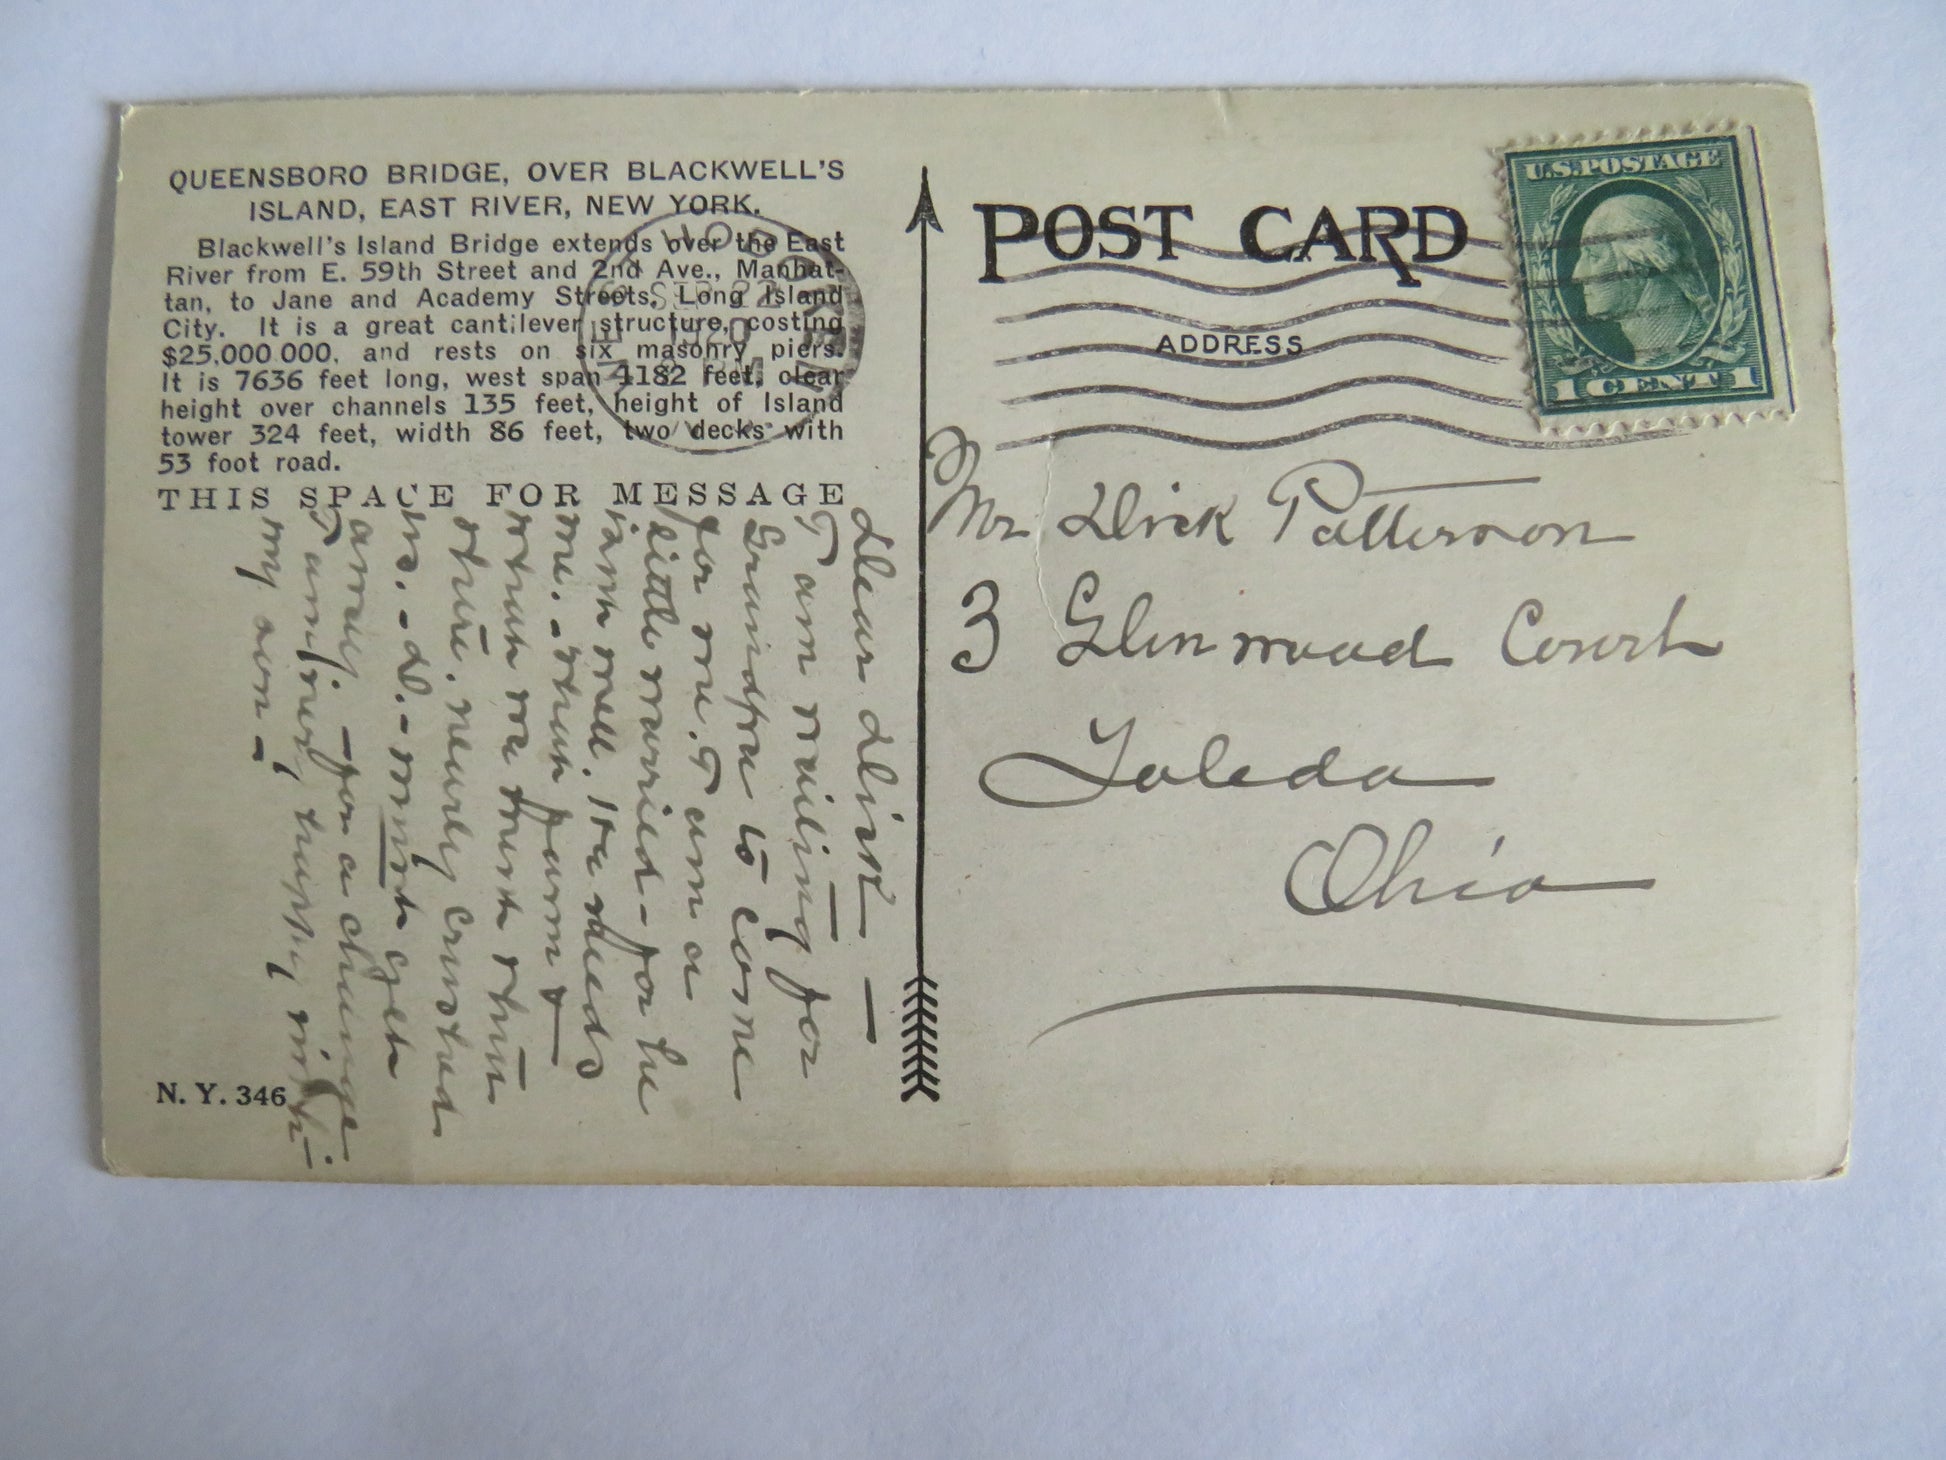 QUEENSBORO BRIDGE, OVER BLACKWELL'S
ISLAND, EAST RIVER, NEW YORK.
Blackwell's Island Bridge extends over the East
River from E. 59th Street and 2nd Ave., Manhat-
tan, to Jane and Academy Streets, Long Island
City. It is a great cantilever structure, costing
$25,000.000, and rests on six masonry piers.
It is 7636 feet long, west span 1182 feet, clear
height over channels 135 feet, height of Island
tower 324 feet, width 86 feet, two decks with
53 foot road.
THIS SPACE FOR MESSAGE
Dear Dick —
I am waiting for
Grandpa to come
for me. I am a
little worried - for he
isn't well. He needs
me. -
nearly
get
away. - for a change
I am very, happy, with
my son -
N. Y. 346
SEP 22
1920
POST CARD
ADDRESS
U.S. POSTAGE
1 CENT 1
Mr Dick Patterson
3 Glenwood Court
Toledo
Ohio